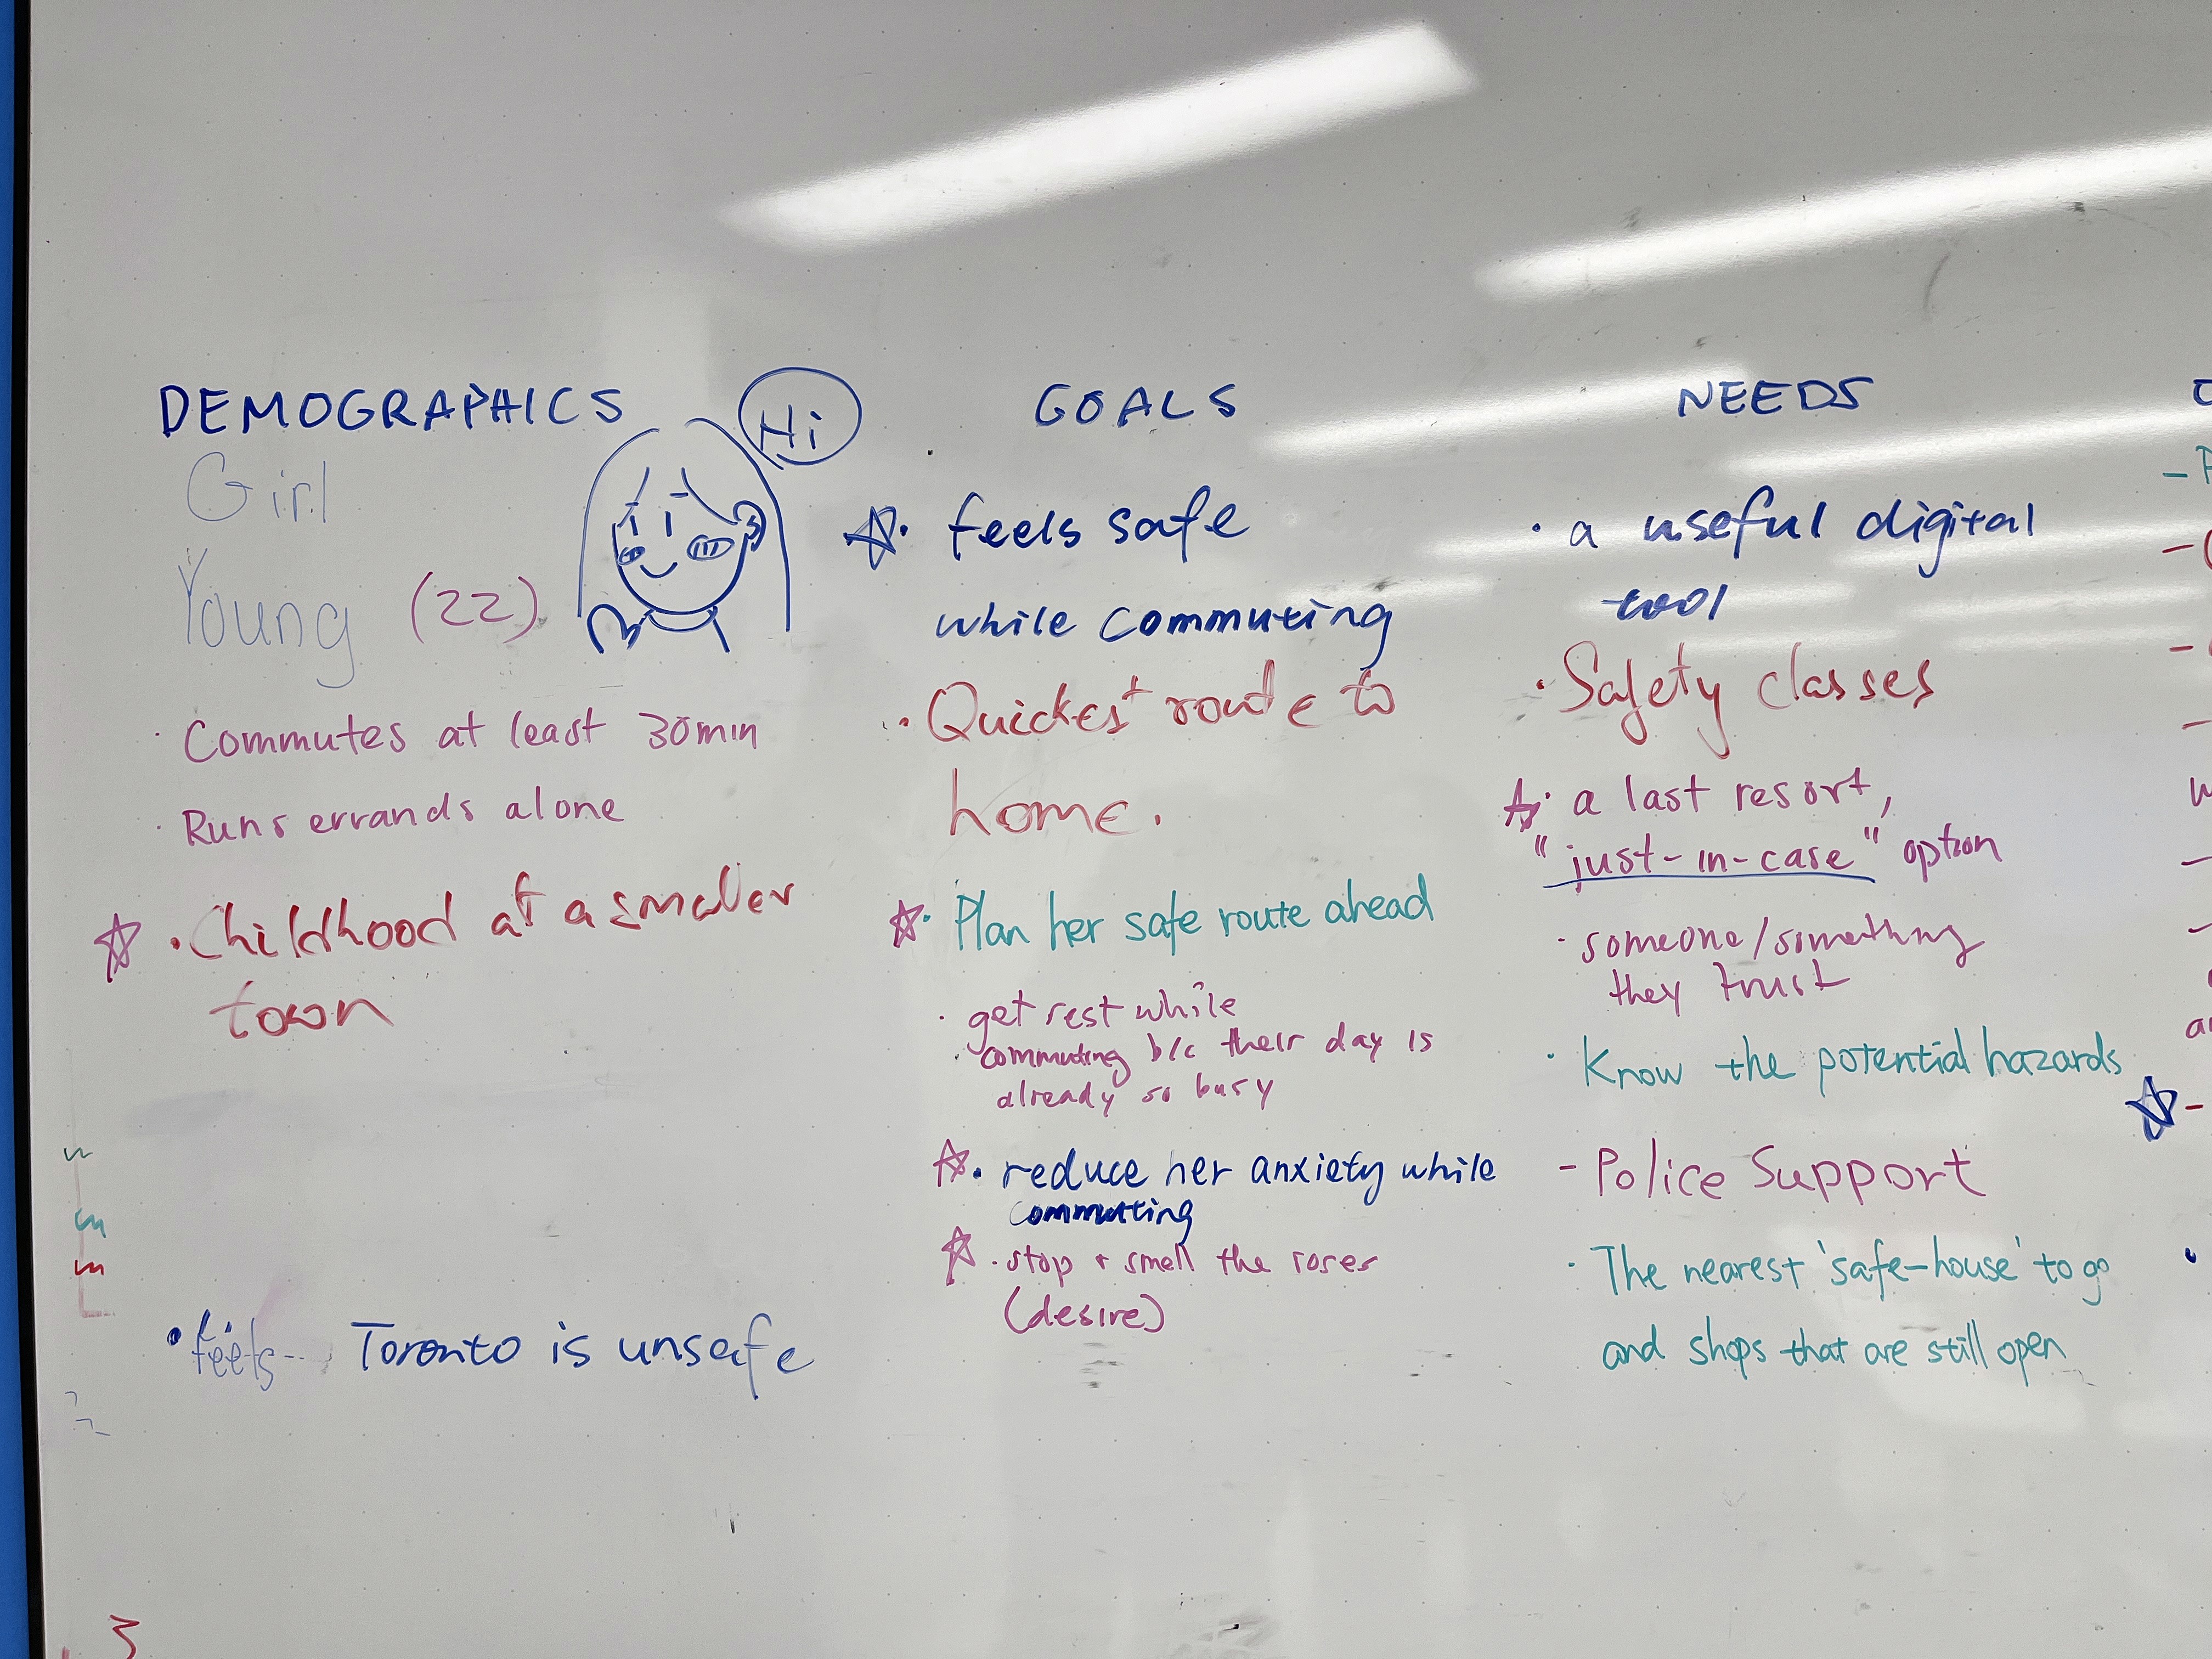 DEMOGRAPHICS
Hi
Girl
Young (22)
· Commutes at least 30min
· Runs errands alone
☆ · Childhood at a smaller
town
· feels Toronto is unsafe
GOALS
☆ · feels safe
while commuting
· Quickest route to
home.
☆ · Plan her safe route ahead
· get rest while
commuting b/c their day is
already so busy
☆ · reduce her anxiety while
commuting
☆ · stop + smell the roses
(desire)
NEEDS
· a useful digital
tool
· Safety classes
☆ · a last resort,
"just-in-case" option
· someone/something
they trust
· Know the potential hazards
- Police Support
· The nearest 'safe-house' to go
and shops that are still open